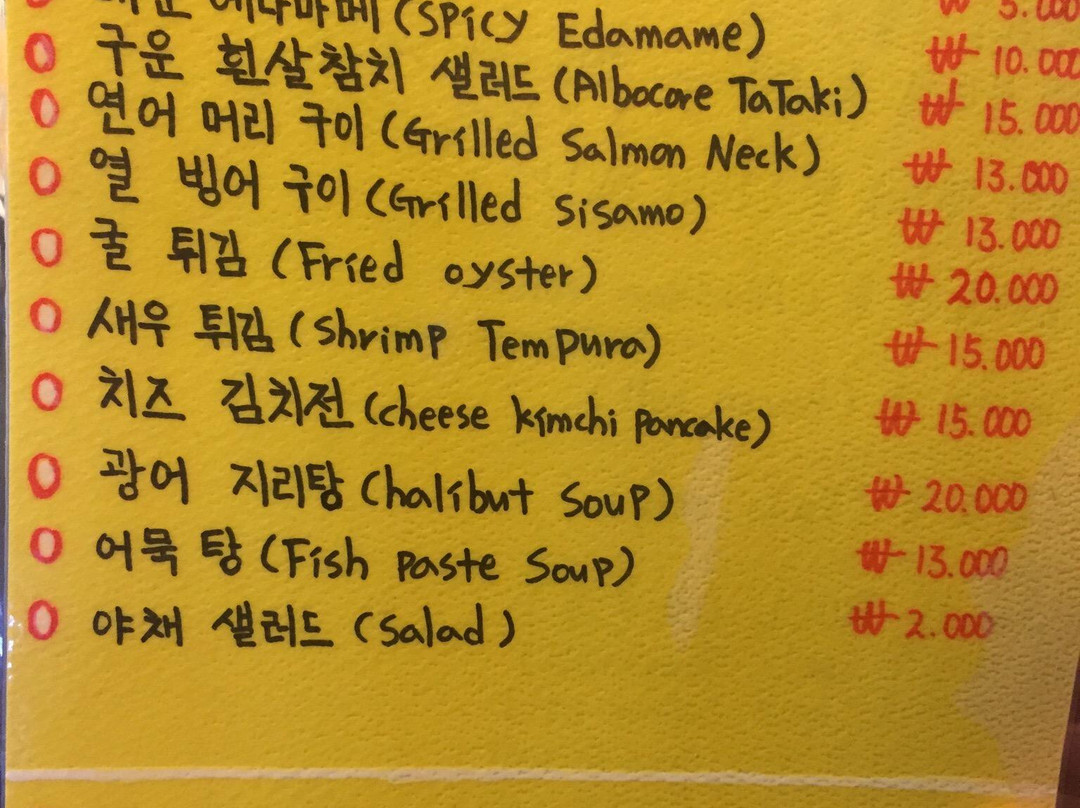 ₩ 5.000
에다마메 (SPicy Edamame) ₩ 10.000
구운 흰살참치 샐러드 (Albocore TaTaki) ₩ 15.000
연어 머리 구이 (Grilled Salmon Neck) ₩ 13.000
열 빙어 구이 (Grilled Sisamo) ₩ 13.000
굴 튀김 (Fried oyster) ₩ 20.000
새우 튀김 (Shrimp TemPura) ₩ 15.000
치즈 김치전 (cheese kimchi Pancake) ₩ 15.000
광어 지리탕 (halibut SouP) ₩ 20.000
어묵 탕 (Fish Paste Soup) ₩ 13.000
야채 샐러드 (Salad) ₩ 2.000